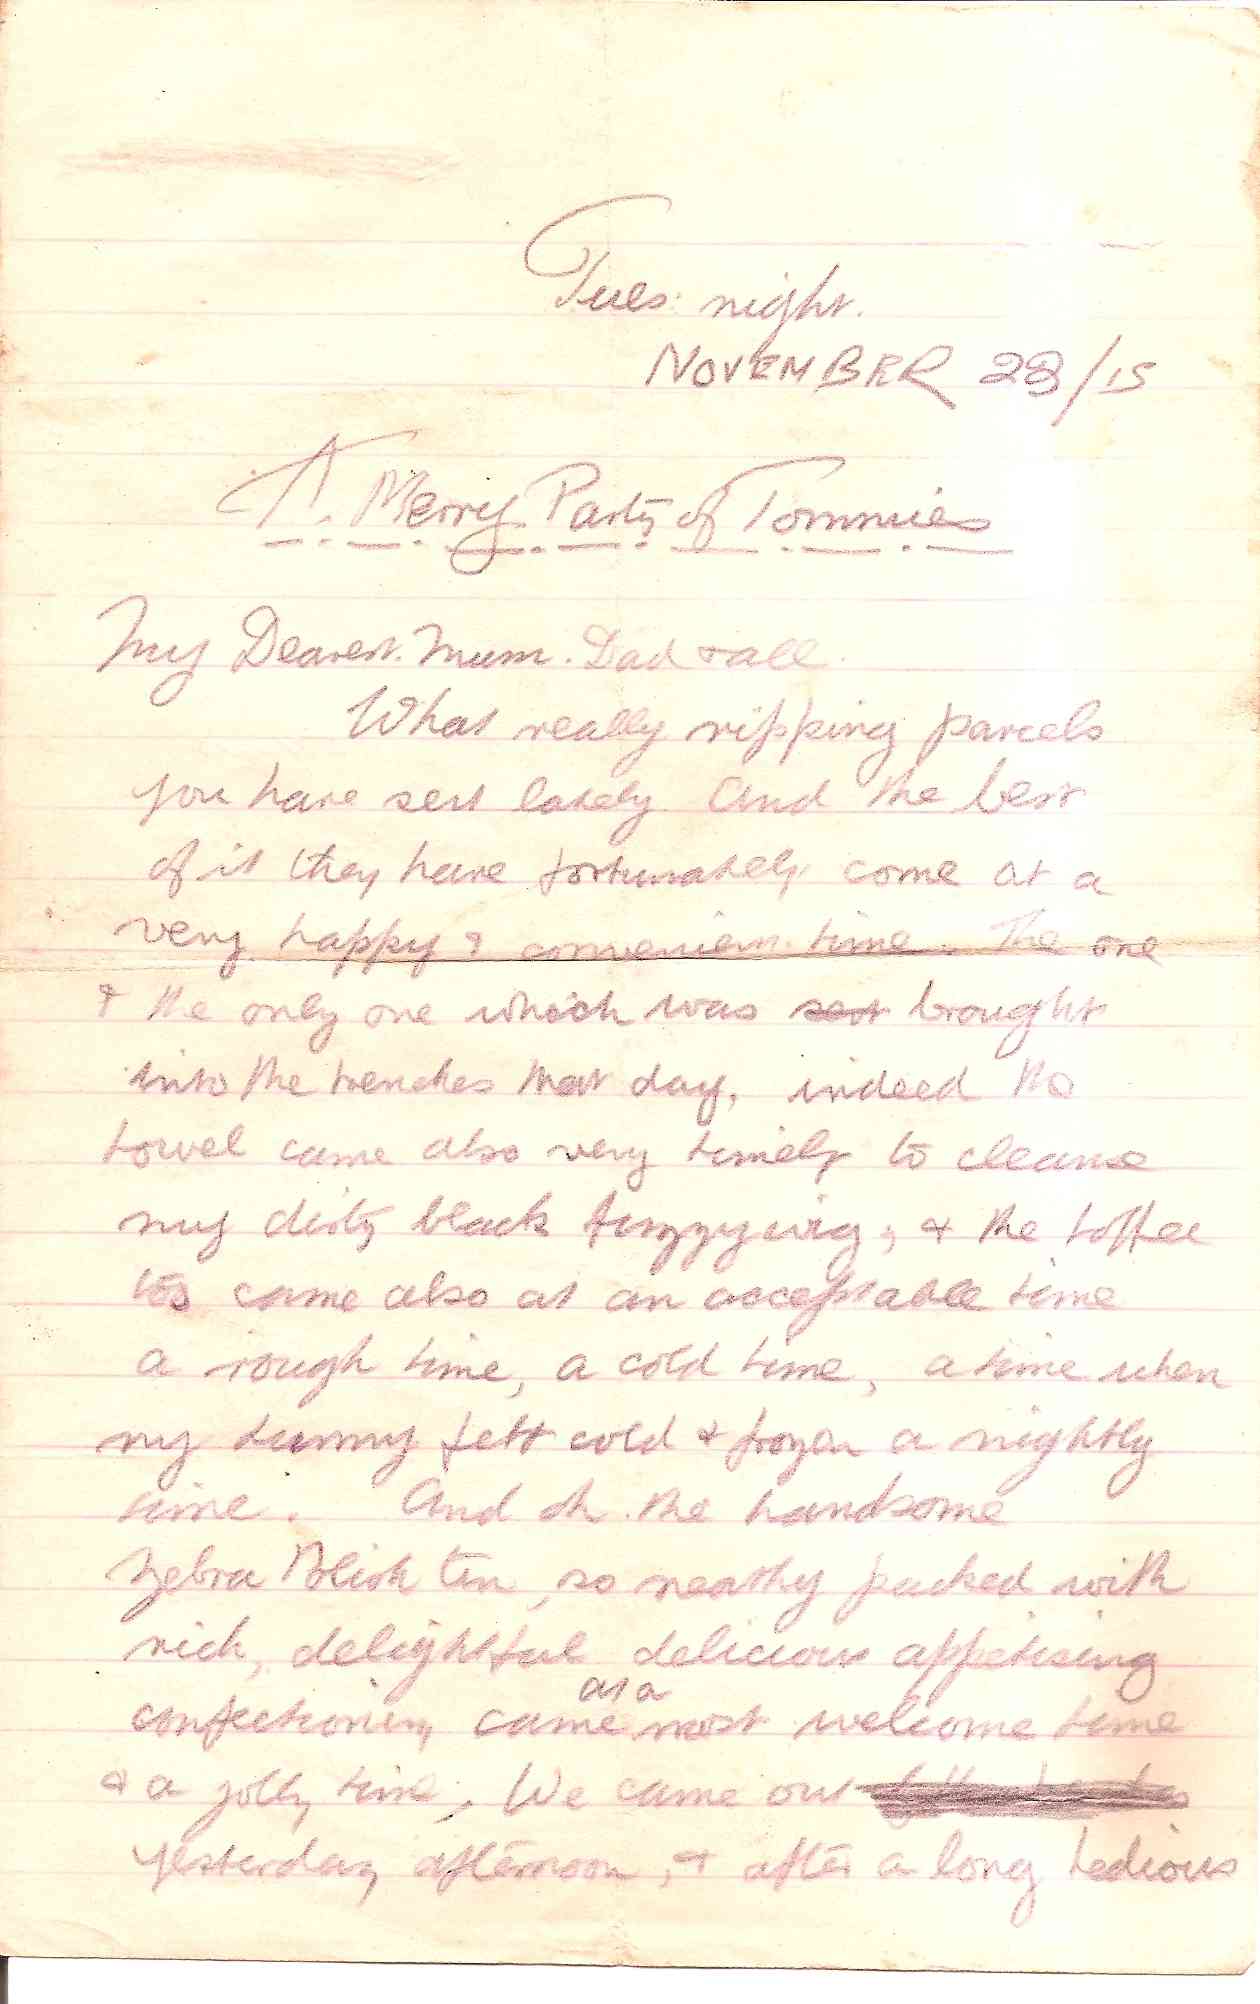 Tues: night.
NOVEMBER 23/15
A. Merry Party of Tommies
My Dearest. Mum. Dad & all.
What really ripping parcels
you have sent lately. And the best
of it they have fortunately come at a
very happy & convenient time. The one
& the only one which was sent brought
into the trenches that day, indeed the
towel came also very timely to cleanse
my dirty black fuzzywig, & the toffee
too came also at an acceptable time
a rough time, a cold time, a time when
my tummy felt cold & frozen a nightly
time. And oh. the handsome
Zebra Polish tin, so neatly packed with
rich, delightful delicious appetising
confectionery came at a most welcome time
& a jolly time, We came out
yesterday afternoon, & after a long tedious